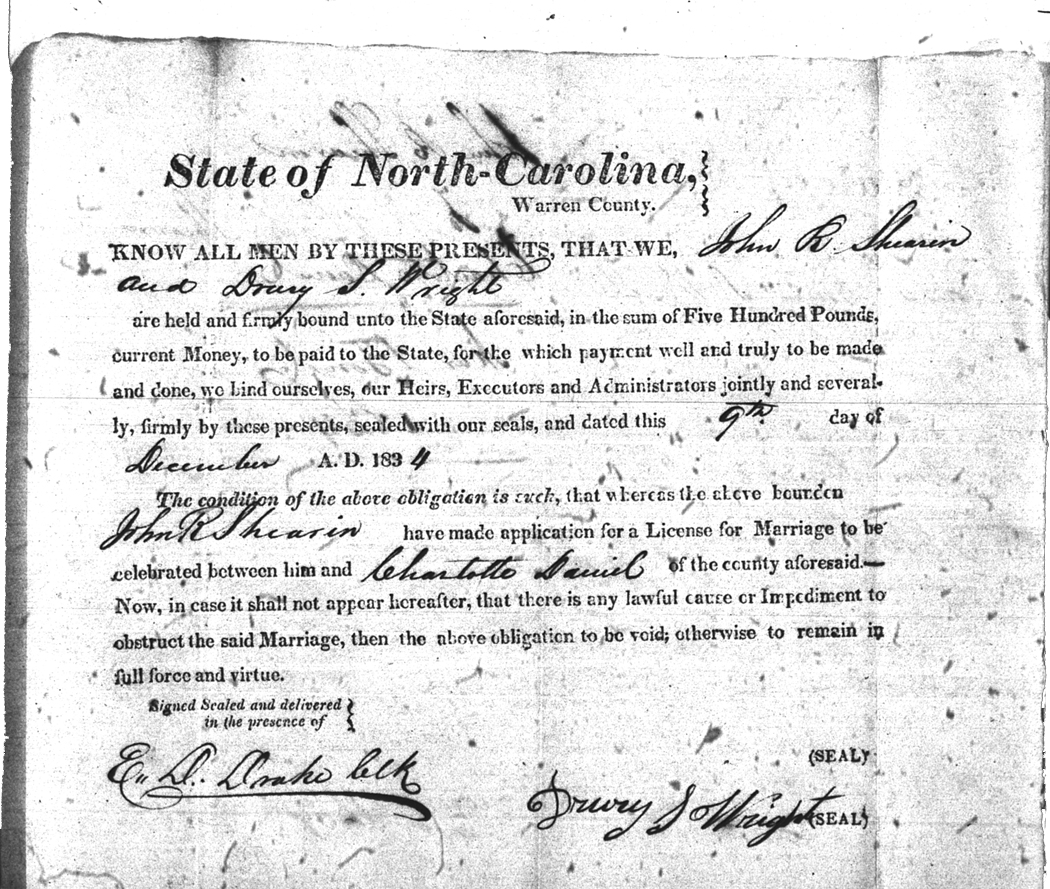 State of North-Carolina,
Warren County.
KNOW ALL MEN BY THESE PRESENTS, THAT WE, John R. Shearin
and Drury S. Wright
are held and firmly bound unto the State aforesaid, in the sum of Five Hundred Pounds,
current Money, to be paid to the State, for the which payment well and truly to be made
and done, we bind ourselves, our Heirs, Executors and Administrators jointly and several-
ly, firmly by these presents, sealed with our seals, and dated this 9th day of
December A. D. 1834
The condition of the above obligation is such, that whereas the above bounden
John R Shearin have made application for a License for Marriage to be
celebrated between him and Charlotte Daniel of the county aforesaid.—
Now, in case it shall not appear hereafter, that there is any lawful cause or Impediment to
obstruct the said Marriage, then the above obligation to be void; otherwise to remain in
full force and virtue.
Signed Sealed and delivered
in the presence of
(SEAL)
E. D. Drake Clk
Drury S Wright (SEAL)